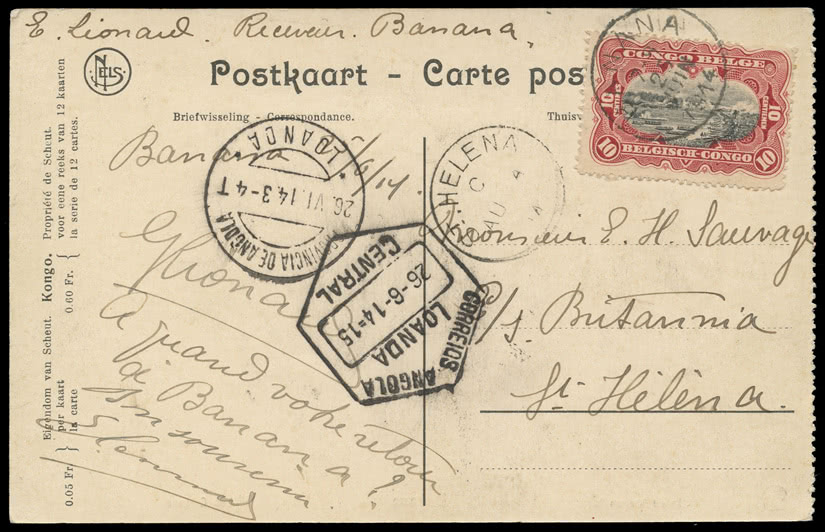 E. Lionard. Receveur. Banana.
NELS
Postkaart – Carte pos
Briefwisseling – Correspondance.
Thuis
CONGO BELGE
10 CENTIMES
10 CENTIEMEN
BELGISCH-CONGO
BANANA
1914
Banana
/6/14.
à quand votre retour
à Banana?
Bon souvenir
Monsieur E. H. Sauvage
C/s. Britannia
St Hélèna.
PROVINCIA DE ANGOLA
LOANDA
26 VI 14 3-4 T
CORREIOS ANGOLA
LOANDA
26-6-14=15
CENTRAL
ST HELENA
C
AU
Eigendom van Scheut. Kongo. Propriété de Scheut.
per kaart voor eene reeks van 12 kaarten
0.05 Fr. 0.60 Fr.
la carte la serie de 12 cartes.